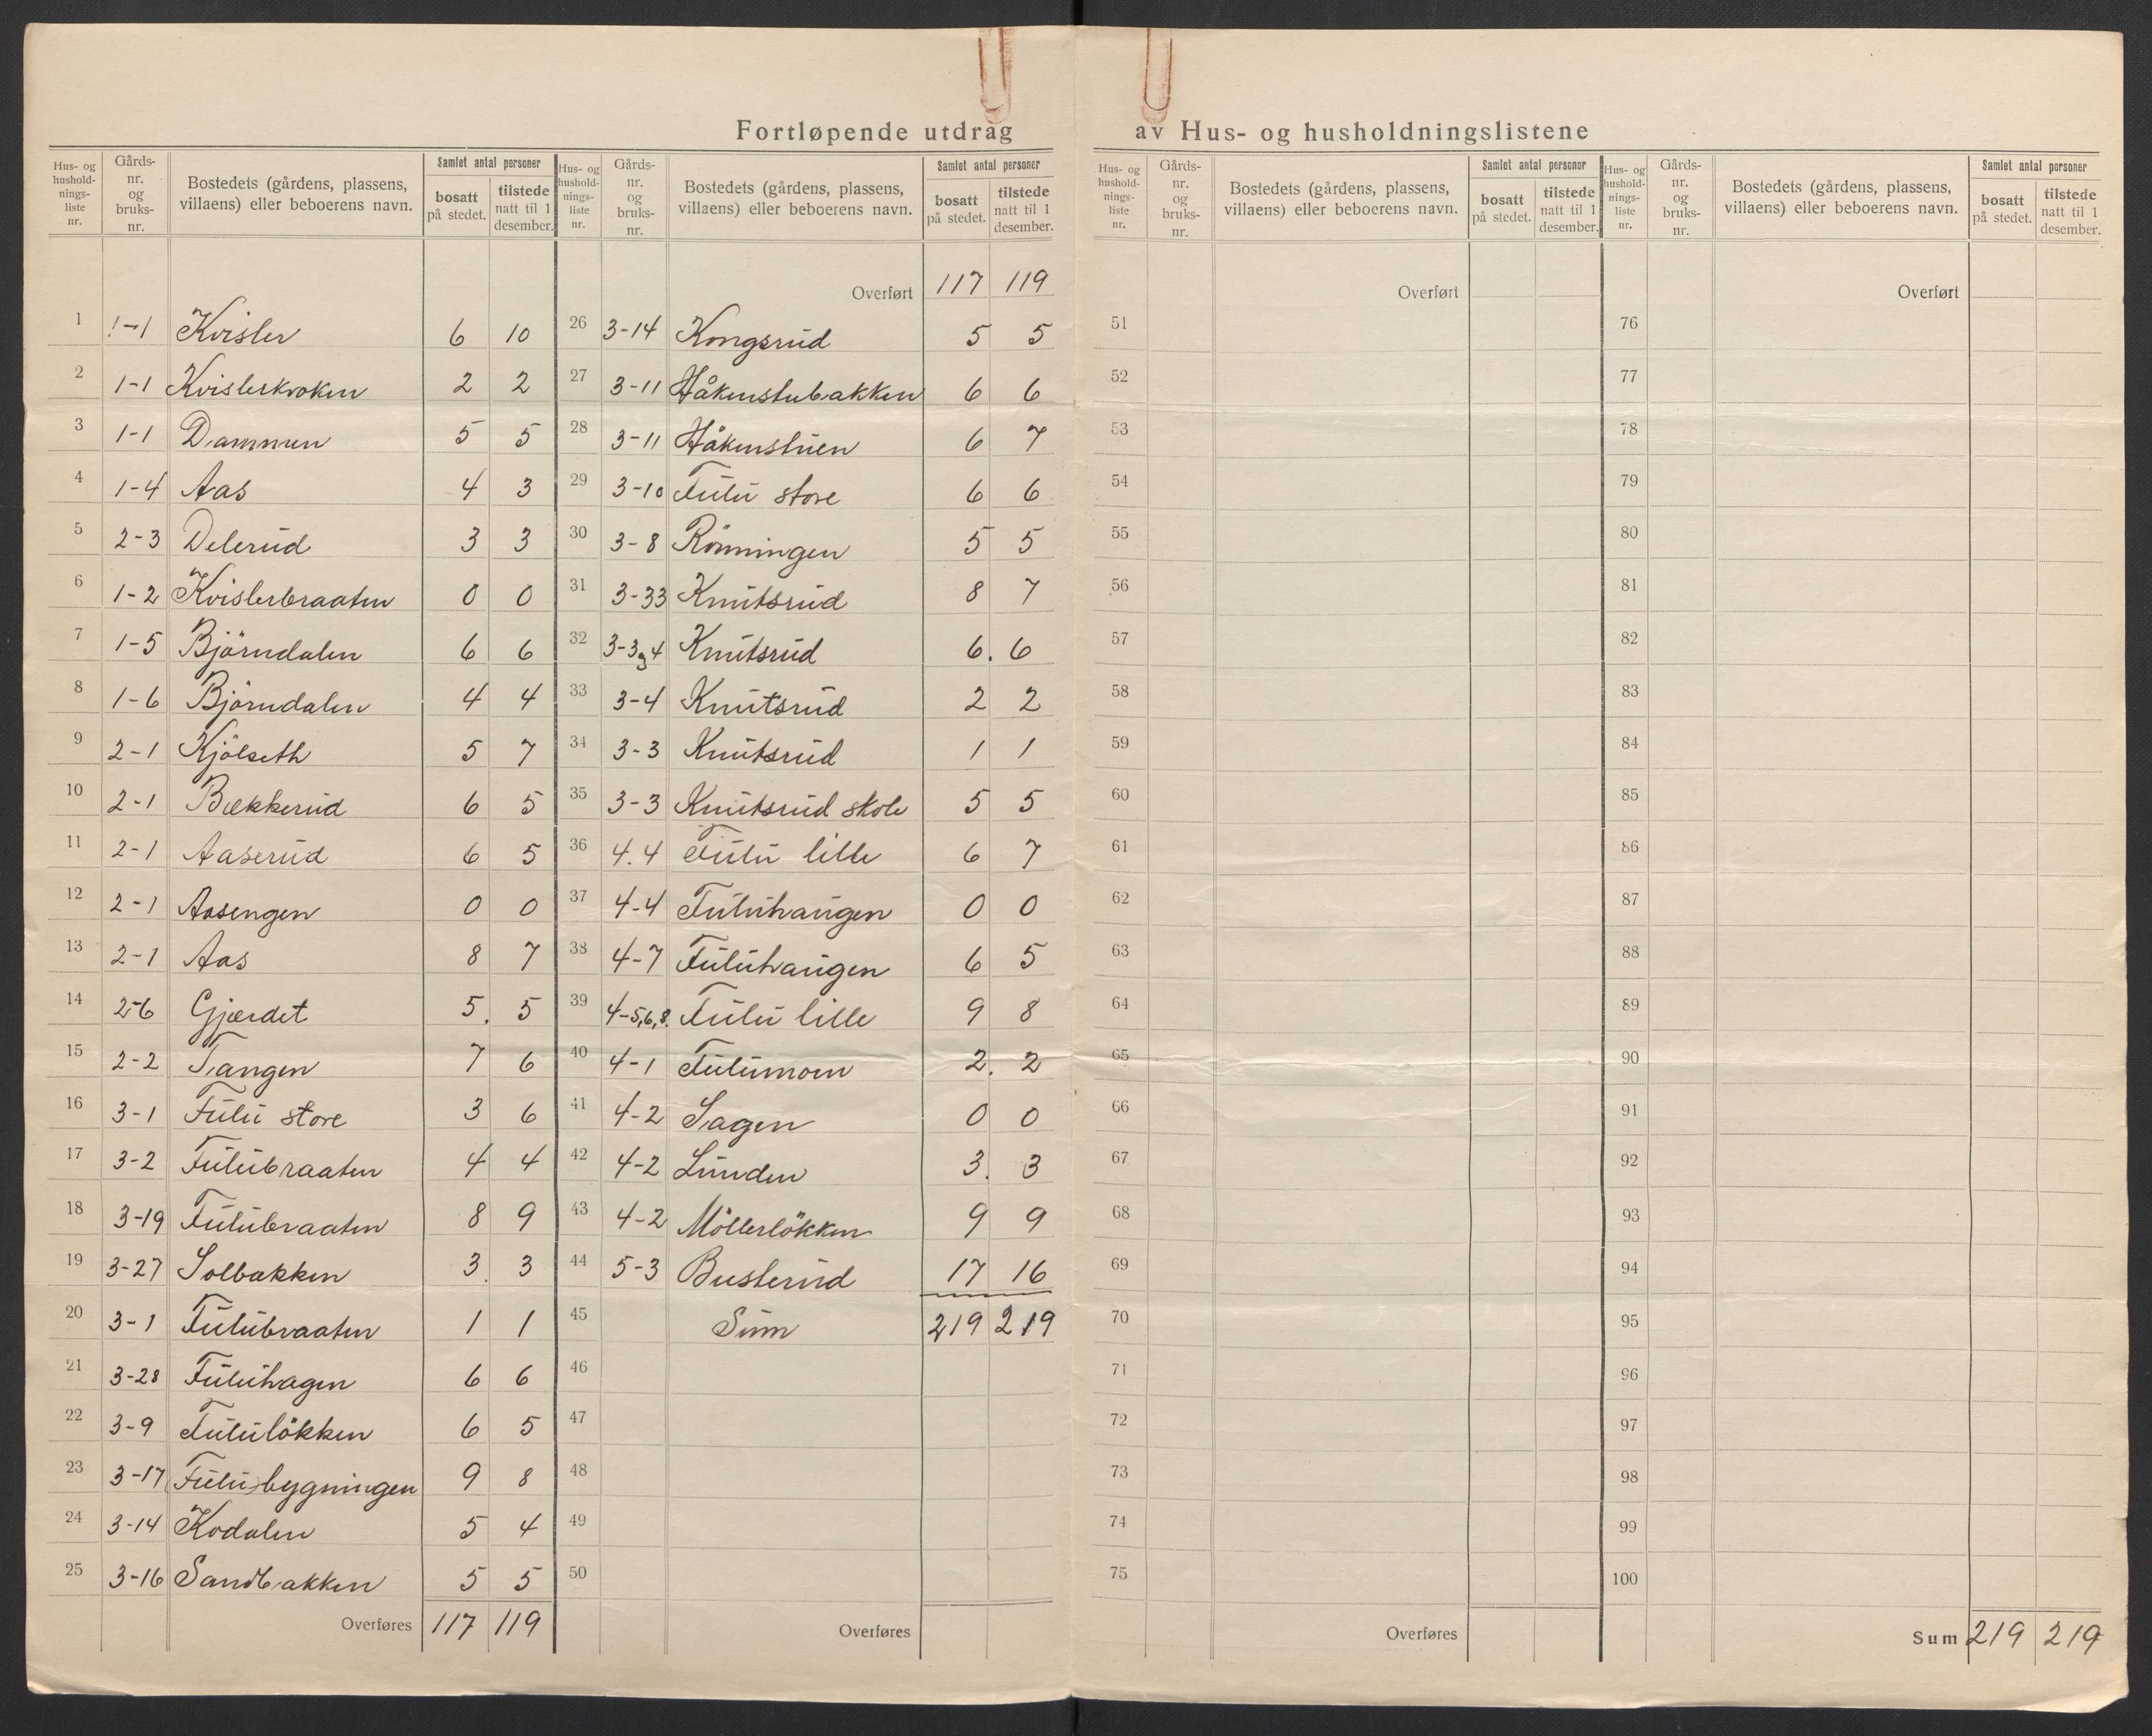 Fortløpende utdrag av Hus- og husholdningslistene
Hus- og husholdningsliste nr. | Gårdsnr. og bruksnr. | Bostedets (gårdens, plassens, villaens) eller beboerens navn. | Samlet antal personer | bosatt på stedet. | tilstede natt til 1 desember.
1 1-1 Kvisler 6 10
2 1-1 Kvislerkroken 2 2
3 1-1 Dammen 5 5
4 1-4 Aas 4 3
5 2-3 Delerud 3 3
6 1-2 Kvislerbraaten 0 0
7 1-5 Björndalen 6 6
8 1-6 Björndalen 4 4
9 2-1 Kjölseth 5 7
10 2-1 Bækkerud 6 5
11 2-1 Aaserud 6 5
12 2-1 Aasengen 0 0
13 2-1 Aas 8 7
14 2-6 Gjærdet 5. 5
15 2-2 Tangen 7 6
16 3-1 Fulu store 3 6
17 3-2 Fulubraaten 4 4
18 3-19 Fulubraaten 8 9
19 3-27 Solbakken 3. 3
20 3-1 Fulubraaten 1 1
21 3-28 Fuluhagen 6 6
22 3-9 Fululökken 6 5
23 3-17 (Fulu) bygningen 9 8
24 3-14 Kodalen 5 4
25 3-16 Sandbakken 5 5
Overføres 117 119
Hus- og husholdningsliste nr. | Gårdsnr. og bruksnr. | Bostedets (gårdens, plassens, villaens) eller beboerens navn. | Samlet antal personer | bosatt på stedet. | tilstede natt til 1 desember.
Overført 117 119
26 3-14 Kongsrud 5 5
27 3-11 Håkenstubakken 6 6
28 3-11 Håkenstuen 6 7
29 3-10 Fulu store 6 6
30 3-8 Rönningen 5 5
31 3-33 Knutsrud 8 7
32 3-3 og 4 Knutsrud 6. 6
33 3-4 Knutsrud 2 2
34 3-3 Knutsrud 1 1
35 3-3 Knutsrud skole 5 5
36 4.4 Fulu lille 6 7
37 4-4 Fuluhaugen 0 0
38 4-7 Fuluhaugen 6 5
39 4-5,6,8. Fulu lille 9 8
40 4-1 Fulumoen 2. 2
41 4-2 Sagen 0 0
42 4-2 Lunden 3. 3
43 4-2 Möllerlökken 9 9
44 5-3 Busterud 17 16
45 Sum 219 219
46
47
48
49
50
Overføres
Hus- og husholdningsliste nr. | Gårdsnr. og bruksnr. | Bostedets (gårdens, plassens, villaens) eller beboerens navn. | Samlet antal personer | bosatt på stedet. | tilstede natt til 1 desember.
Overført
51
52
53
54
55
56
57
58
59
60
61
62
63
64
65
66
67
68
69
70
71
72
73
74
75
Overføres
Hus- og husholdningsliste nr. | Gårdsnr. og bruksnr. | Bostedets (gårdens, plassens, villaens) eller beboerens navn. | Samlet antal personer | bosatt på stedet. | tilstede natt til 1 desember.
Overført
76
77
78
79
80
81
82
83
84
85
86
87
88
89
90
91
92
93
94
95
96
97
98
99
100
Sum 219 219